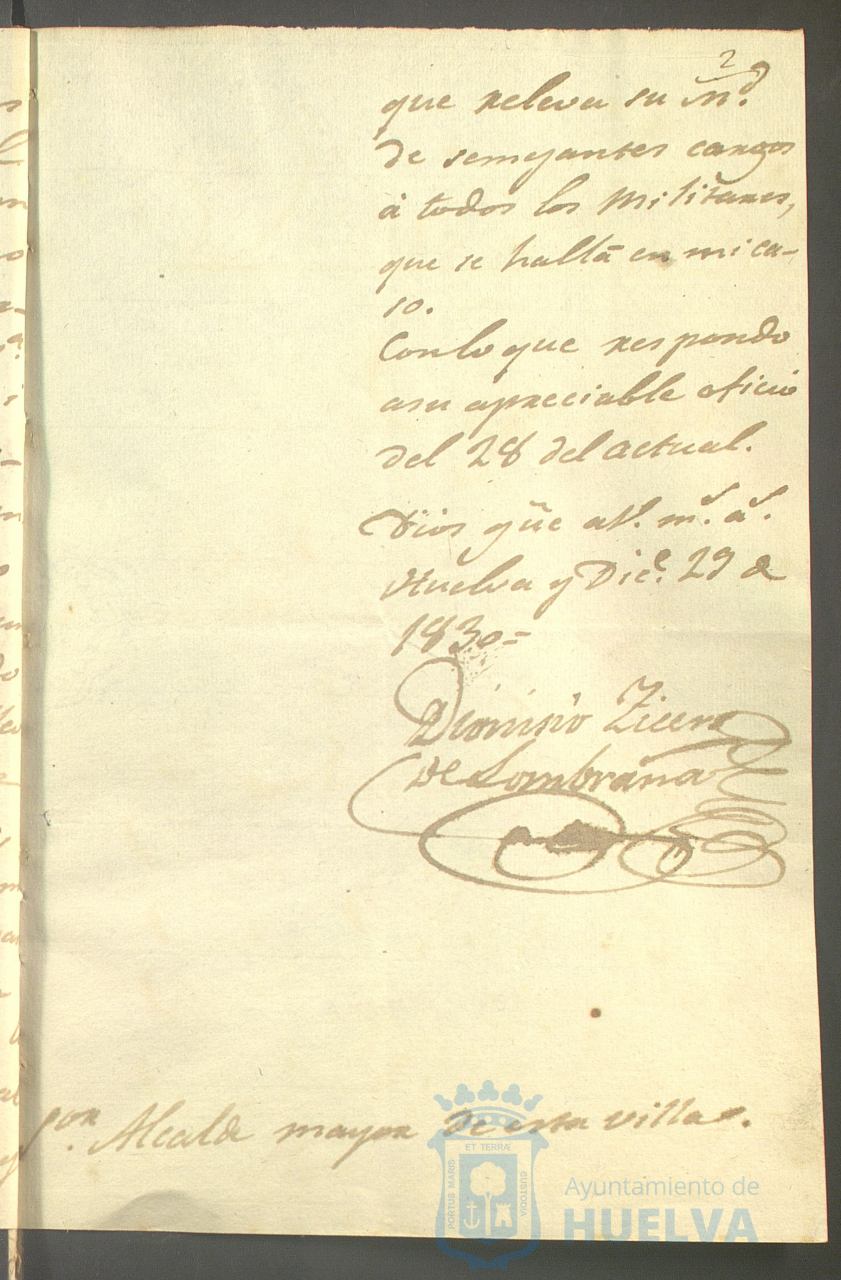 2
que releva su M.d
de semejantes cargos
à todos los Militares,
que se hallã en mi ca-
so.
Con lo que respondo
asu apreciable oficio
del 28 del actual.
Dios gũe aV. m.s a.s
Huelva y Dic.e 29 de
1830=
Dionisio Ticera
de Lombraña
Sor. Alcalde mayor de esta villa.
PORTUS MARIS ET TERRÆ CUSTODIA
Ayuntamiento de
HUELVA